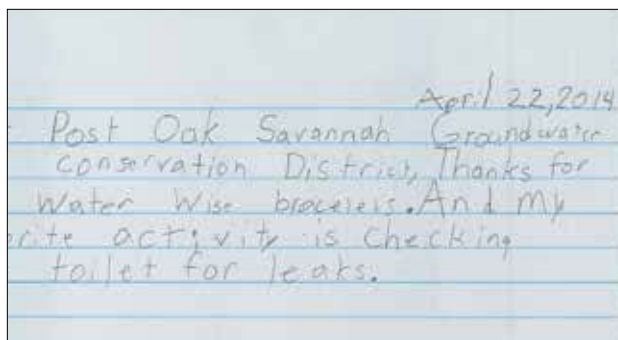 April 22,2014
Post Oak Savannah Groundwater
conservation District, Thanks for
Water Wise bracelets. And my
orite activity is checking
toilet for leaks.